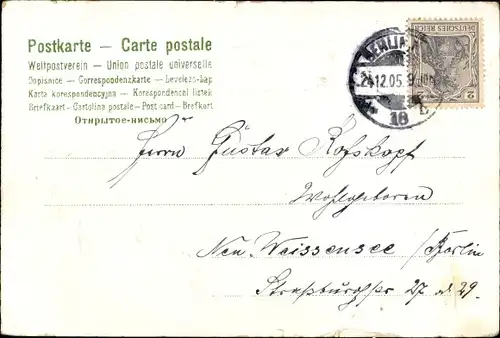 Postkarte – Carte postale
Weltpostverein – Union postale universelle
Dopisnice – Correspondenzkarte – Levelező-lap
Karta korespondencyjna – Korespondencni listek
Briefkaart – Cartolina postale – Post card – Brefkort
Открытое-письмо
BERLIN
24.12.05. 9
16
DEUTSCHES REICH
2 2
Herrn Gustav Rofskopf
Wohlgeboren
Neu Weissensee / Berlin
27 29.